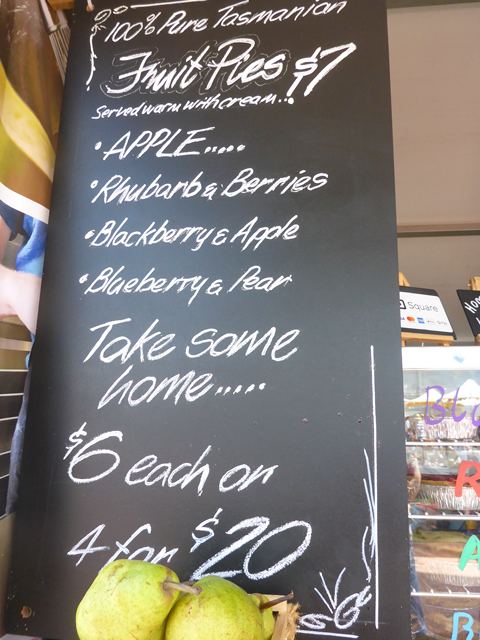 100% Pure Tasmanian
Fruit Pies $7
Served warm with cream...
• APPLE.....
• Rhubarb & Berries
• Blackberry & Apple
• Blueberry & Pear
Take some
home.....
$6 each or
4 for $20
Square